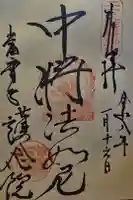 奉拝
令和八年
一月十六日
中将法如尼
當麻寺
護念院